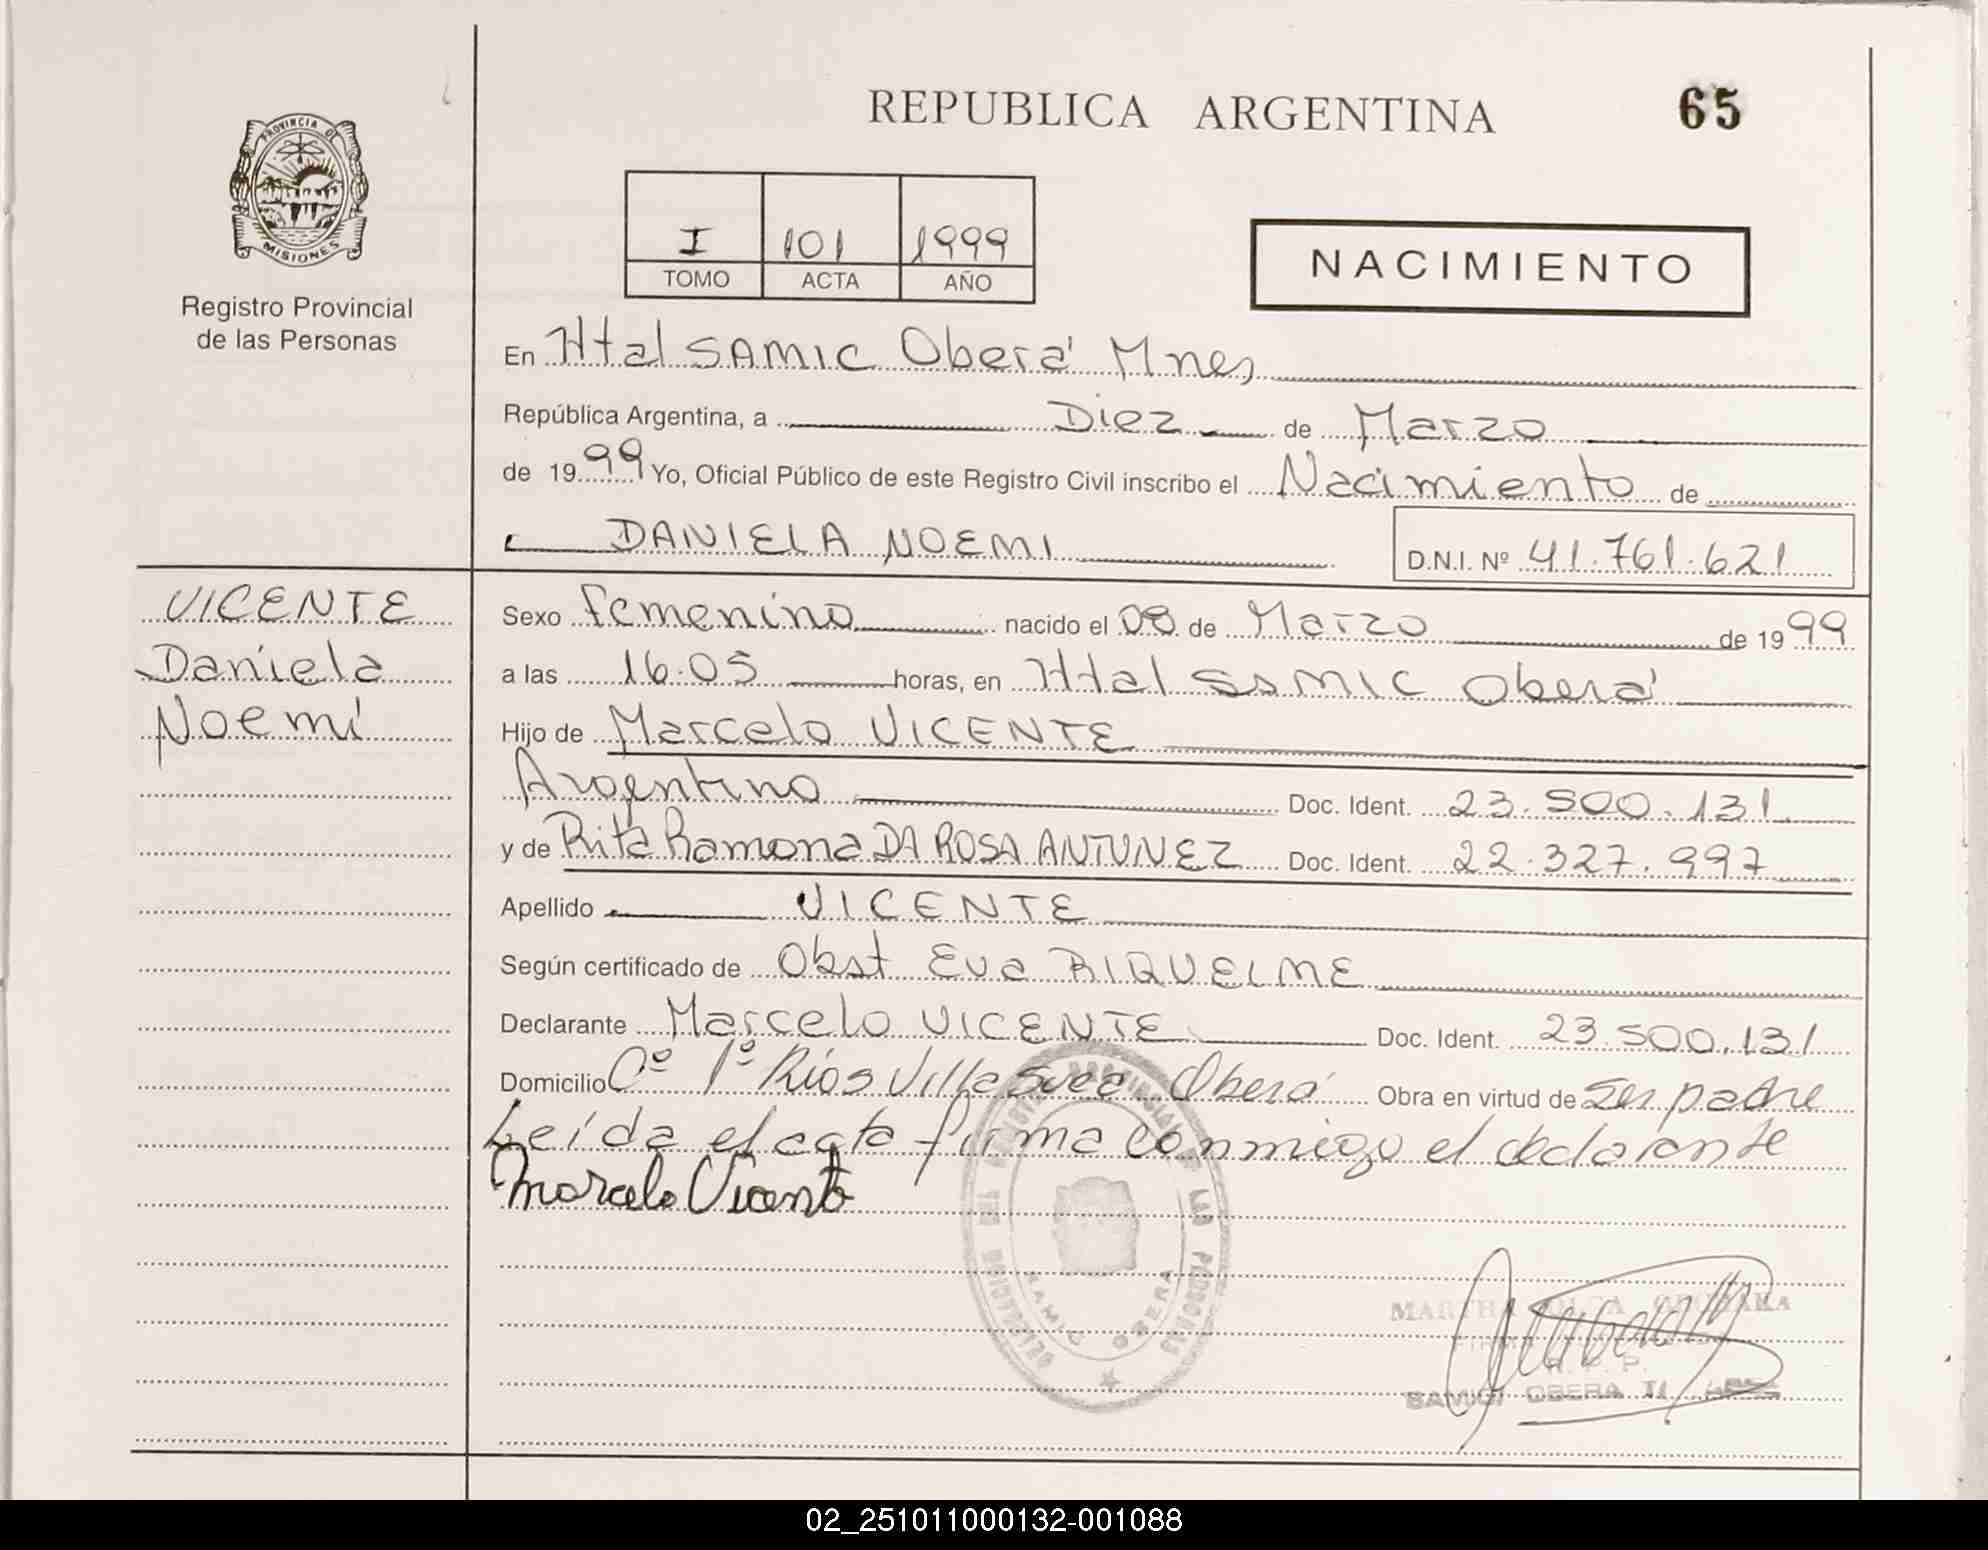 REPUBLICA ARGENTINA
65
PROVINCIA DE
MISIONES
Registro Provincial
de las Personas
I 101 1999
TOMO ACTA AÑO
NACIMIENTO
En Htal SAMIC Oberá Mnes
República Argentina, a Diez de Marzo
de 1999 Yo, Oficial Público de este Registro Civil inscribo el Nacimiento de
DANIELA NOEMI D.N.I. Nº 41.761.621
VICENTE
Daniela
Noemí
Sexo femenino nacido el 08 de Marzo de 1999
a las 16.05 horas, en Htal SAMIC Oberá
Hijo de Marcelo VICENTE
Argentino Doc. Ident. 23.500.131
y de Rita Ramona DA ROSA ANTUNEZ Doc. Ident. 22.327.997
Apellido VICENTE
Según certificado de Obst Eva RIQUELME
Declarante Marcelo VICENTE Doc. Ident. 23.500.131
Domicilio Cº 1º Ríos Oberá Obra en virtud de ser padre
Leída el acta firma conmigo el declarante
Marcelo Vicente
PROVINCIAL DE LAS PERSONAS
DELEGACION
SAMIC OBERA
MARTHA
R. P. P.
SAMIC OBERA
02_251011000132-001088